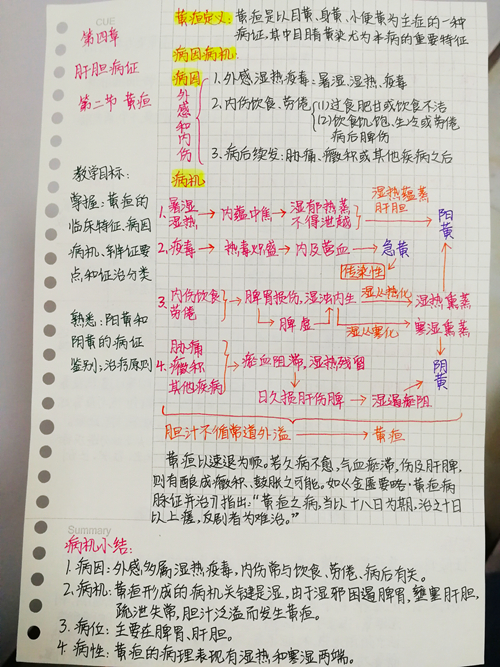 CUE
第四章
肝胆病证
第二节 黄疸
教学目标:
掌握:黄疸的
临床特征、病因
病机、辨证要
点和证治分类
熟悉:阳黄和
阴黄的病证
鉴别;治疗原则
黄疸定义:黄疸是以目黄、身黄、小便黄为主症的一种
病证,其中目睛黄染尤为本病的重要特征
病因病机:
病因
外感和内伤
1.外感湿热疫毒:暑湿、湿热、疫毒
2.内伤饮食、劳倦
(1)过食肥甘或饮食不洁
(2)饮食饥饱、生冷或劳倦
病后脾伤
3.病后续发:胁痛、癥积或其他疾病之后
病机
1.暑湿
湿热
→内蕴中焦→湿郁热蒸
不得泄越
湿热蕴蒸
肝胆
阳黄
2.疫毒→热毒炽盛→内及营血→急黄
传染性
3.内伤饮食
劳倦
→脾胃损伤,湿浊内生
湿从热化
湿热熏蒸
→脾虚
湿从寒化
寒湿熏蒸
阴黄
4.胁痛
癥积
其他疾病
→瘀血阻滞,湿热残留
日久损肝伤脾→湿遏瘀阻
胆汁不循常道外溢→黄疸
黄疸以速退为顺。若久病不愈,气血瘀滞,伤及肝脾,
则有酿成癥积、鼓胀之可能。如《金匮要略·黄疸病
脉证并治》指出:“黄疸之病,当以十八日为期,治之十日
以上瘥,反剧者为难治。”
Summary
病机小结:
1.病因:外感多属湿热疫毒,内伤常与饮食、劳倦、病后有关。
2.病机:黄疸形成的病机关键是湿,由于湿邪困遏脾胃,壅塞肝胆,
疏泄失常,胆汁泛溢而发生黄疸。
3.病位:主要在脾胃、肝胆。
4.病性:黄疸的病理表现有湿热和寒湿两端。